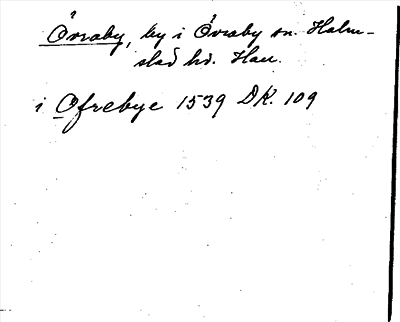 Övraby, by i Övraby sn. Halm-
stad hd. Hall.
i Ofrebye 1539 DK. 109